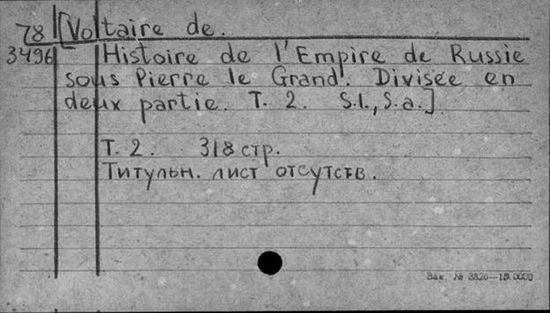 78 [Voltaire de.
3496 Histoire de l'Empire de Russie
sous Pierre le Grand. Divisée en
deux partie. T. 2. S.l., S.a.]
T. 2. 318 стр.
Титульн. лист отсутств.
Зак. № 3826—15.0000